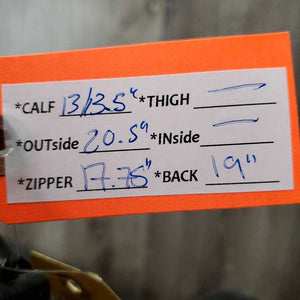 *CALF 13/13.5" *THIGH —
*OUTside 20.5" *INside —
*ZIPPER 17.75" *BACK 19"